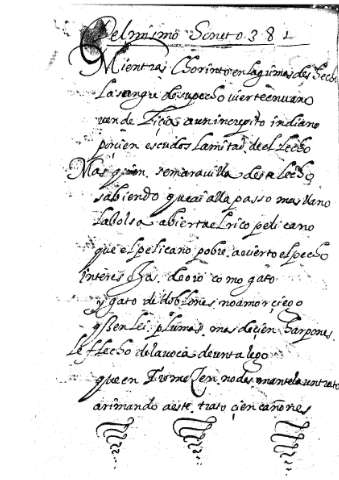 Del mismo Soneto 381
Mientras Corinto en lagrimas deshecho
la sangre de su pecho vierte en vano
vende Licia a un increpito indiano
por cien escudos la mitad del lecho
Mas quien se maravilla deste hecho
sabiendo que alla passo mas llano
la bolsa abierta el rico pelicano
que el pelicano pobre abierto el pecho
interes ojos de oro como gato
y gato de doblones no amor ciego
que en lei plumas mas de cien harpones
le flecho de la
que en Tremecen no desmantela un trato
arimando a este trato cien cañones